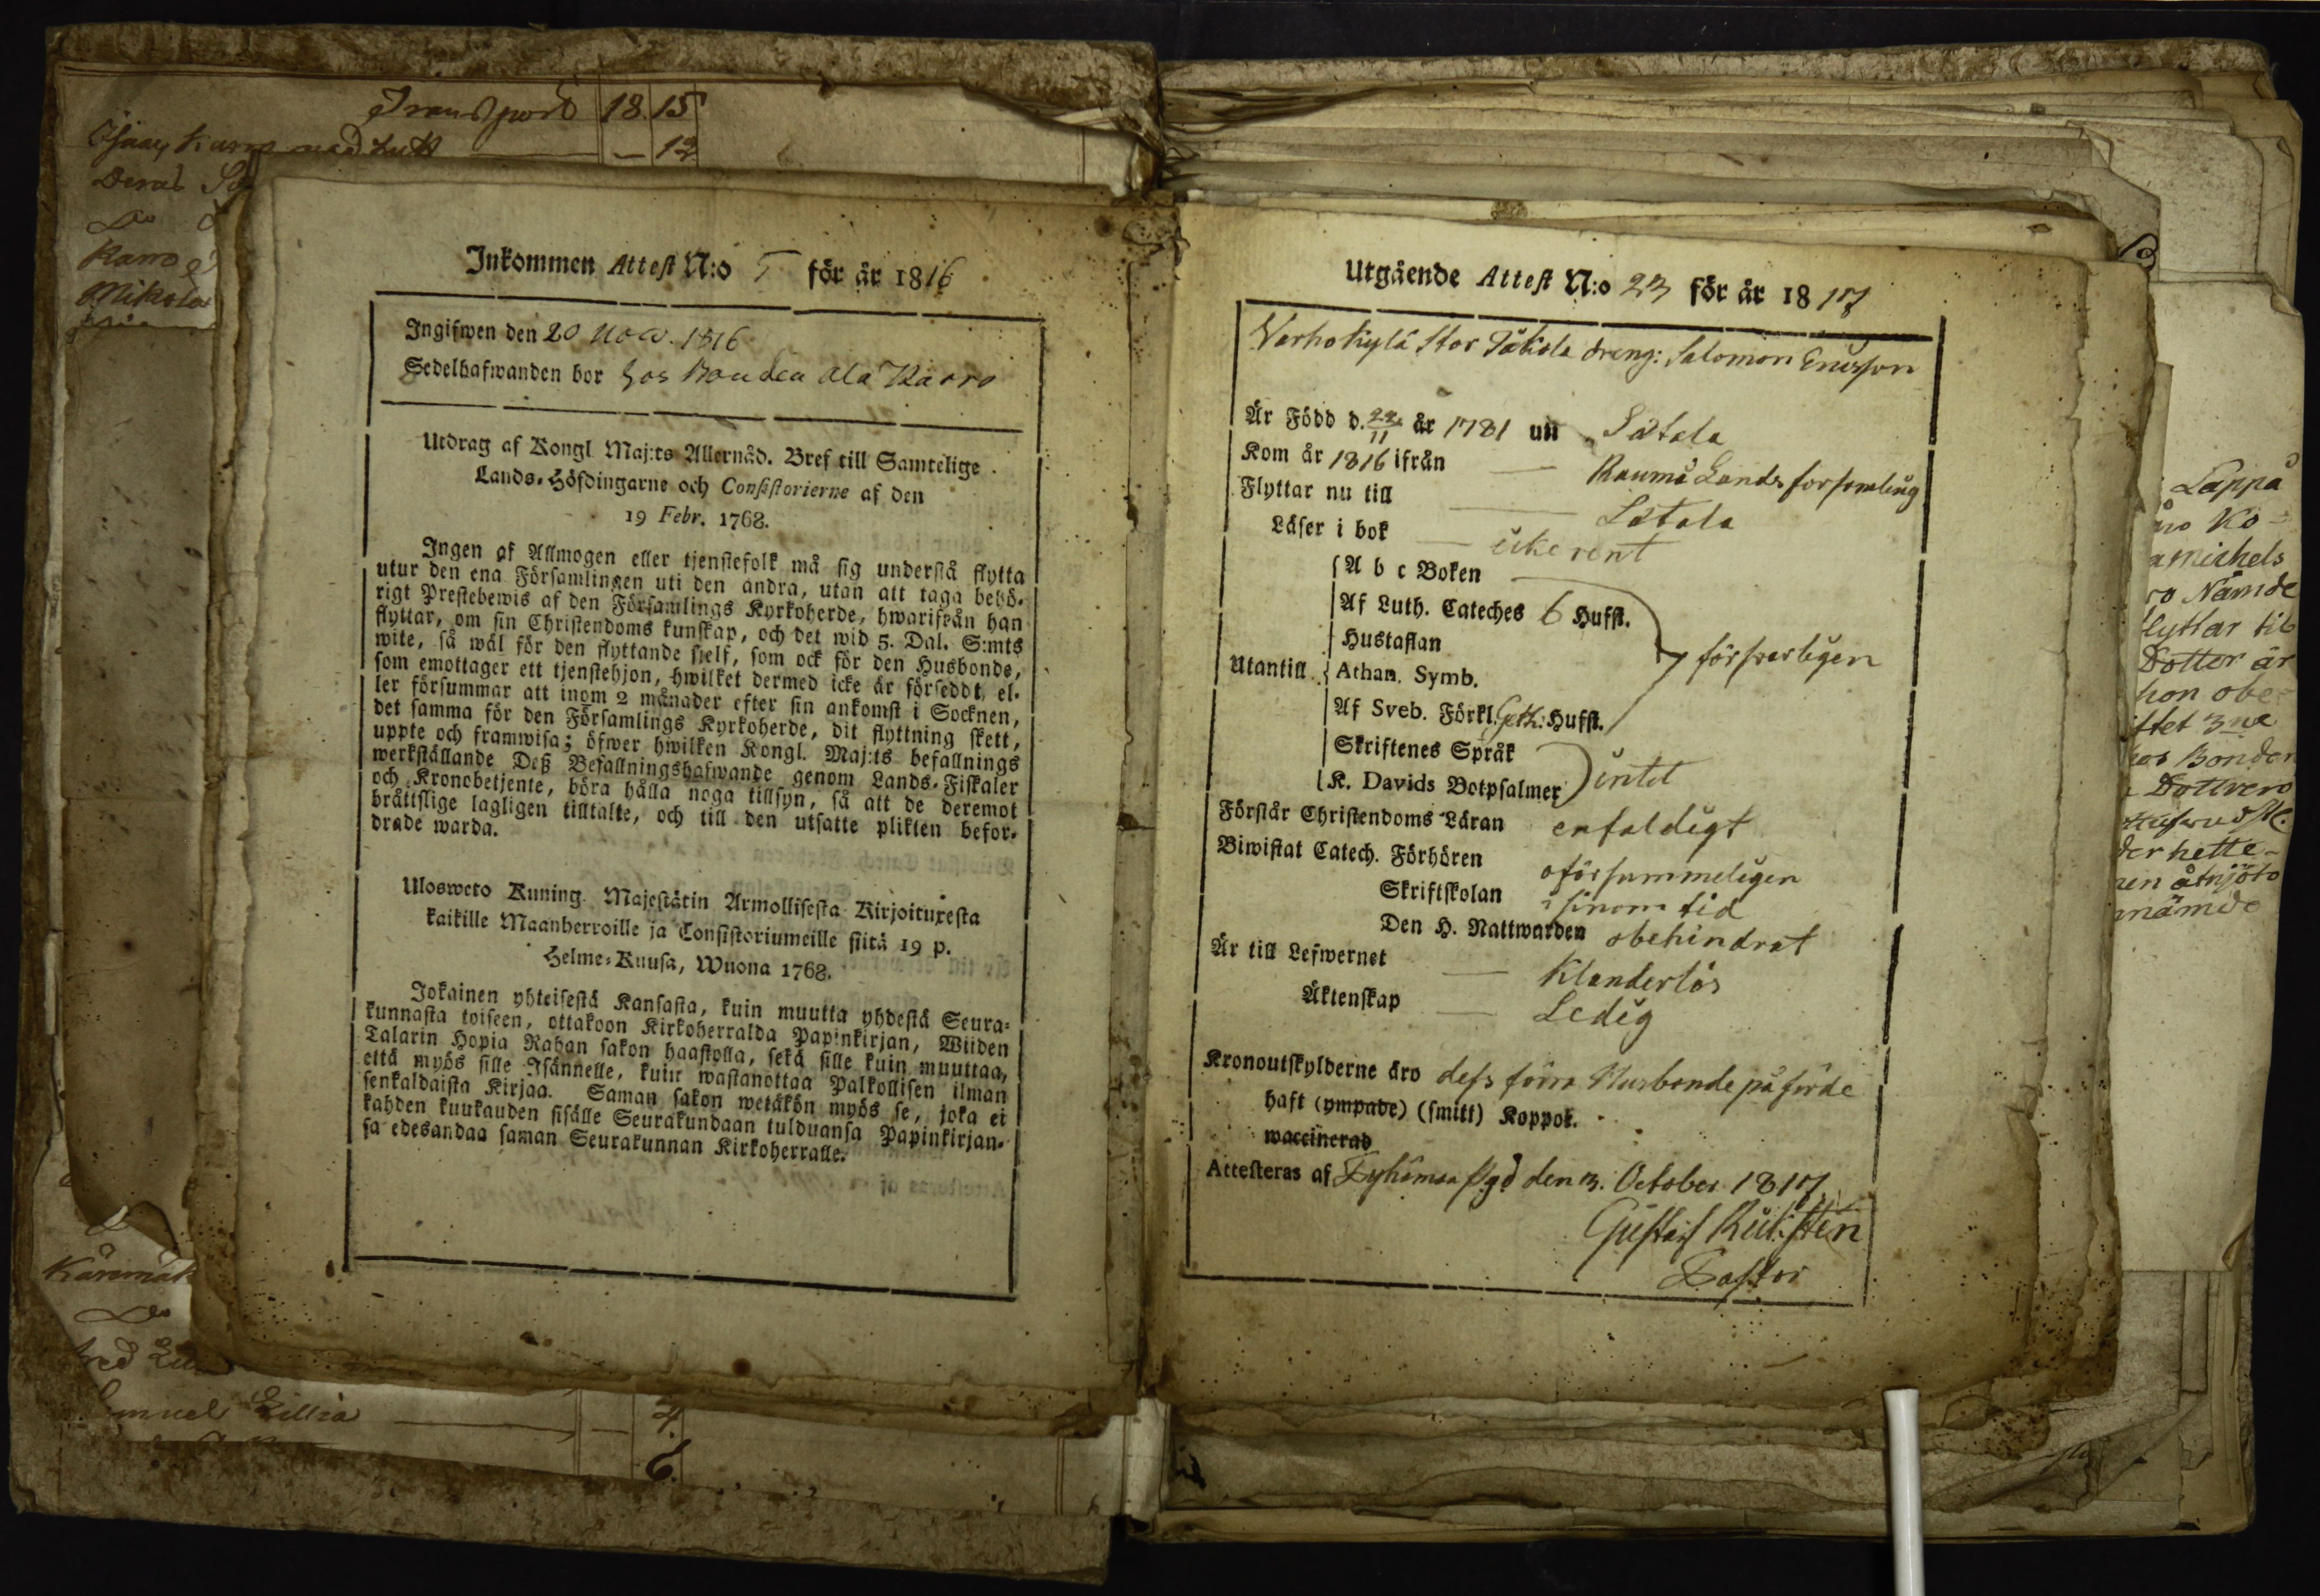 Transport 18. 15
— 12
Deras
Do
Karro
Mikola
Inkommen Attest N:o 5 för år 1816
Ingifwen den 20 Nov. 1816
Sedelhafwanden bor hos Bonden Ala Karro
Utdrag af Kongl Maj:ts Allernåd. Bref till Samtelige
Lands-Höfdingarne och Consistorierne af den
19 Febr. 1768.
Ingen af Allmogen eller tjenstefolk må sig understå flytta
utur den ena Församlingen uti den andra, utan att taga behö-
rigt Prestebewis af den Församlings Kyrkoherde, hwarifrån han
flyttar, om sin Christendoms kunskap, och det wid 5. Dal. S:mts
wite, så wäl för den flyttande sjelf, som ock för den Husbonde,
som emottager ett tjenstehjon, hwilket dermed icke är förseddt, el-
ler försummar att inom 2 månader efter sin ankomst i Socknen,
det samma för den Församlings Kyrkoherde, dit flyttning skett,
uppte och framwisa; öfwer hwilken Kongl. Maj:ts befallnings
werkställande Deß Befallningshafwande genom Lands-Fiskaler
och Kronobetjente, böra hålla noga tillsyn, så att de deremot
bråttslige lagligen tilltalte, och till den utsatte plikten befor-
drade warda.
Ulosweto Kuning. Majestätin Armollisesta Kirjoituxesta
kaikille Maanherroille ja Consistoriumeille siitä 19 p.
Helme-Kuusa, Wuona 1768.
Jokainen yhteisestä Kansasta, kuin muutta yhdestä Seura-
kunnasta toiseen, ottakoon Kirkoherralda Papinkirjan, Wiiden
Talarin Hopia Rahan sakon haastolla, sekä sille kuin muuttaa,
että myös sille Isännelle, kuin wastanottaa Palkollisen ilman
senkaldaista Kirjaa. Saman sakon wetäkön myös se, joka ei
kahden kuukauden sisälle Seurakundaan tulduansa Papinkirjan-
sa edesandaa saman Seurakunnan Kirkoherralle.
Do
Samuel Lillia — 4.
6.
Utgående Attest N:o 23 för år 1817
Varhokylä Stor Jakola dreng: Salomon Ericsson
Är Född d. 22/11 år 1781 uti Letala
Kom år 1816 ifrån — Raumå Landsforsamling
Flyttar nu till — Letala
Läser i bok — icke rent
Utantill
A b c Boken
Af Luth. Cateches 6 Hufst.
Hustaflan
försvarligen
Athan. Symb.
Af Sveb. Förkl. Hufst.
Skriftenes Språk
K. Davids Botpsalmer intet
Förstår Christendoms Läran enfaldigt
Biwistat Catech. Förhören oförsummeligen
Skriftskolan i sinom tid
Den H. Nattwarden obehindrat
Är till Lefwernet — Klanderlös
Äktenskap — Ledig
Kronoutskylderne äro dess förra Husbonde påförde
haft (ympade) (smitt) Koppor.
waccinerad
Attesteras af den 3. October 1817.
Gustaf
Pastor
Lappå
Ko-
Michels
Nämde
flyttar til
Dotter är
hon obe-
Bonden
hette
åtnjöto
nämde